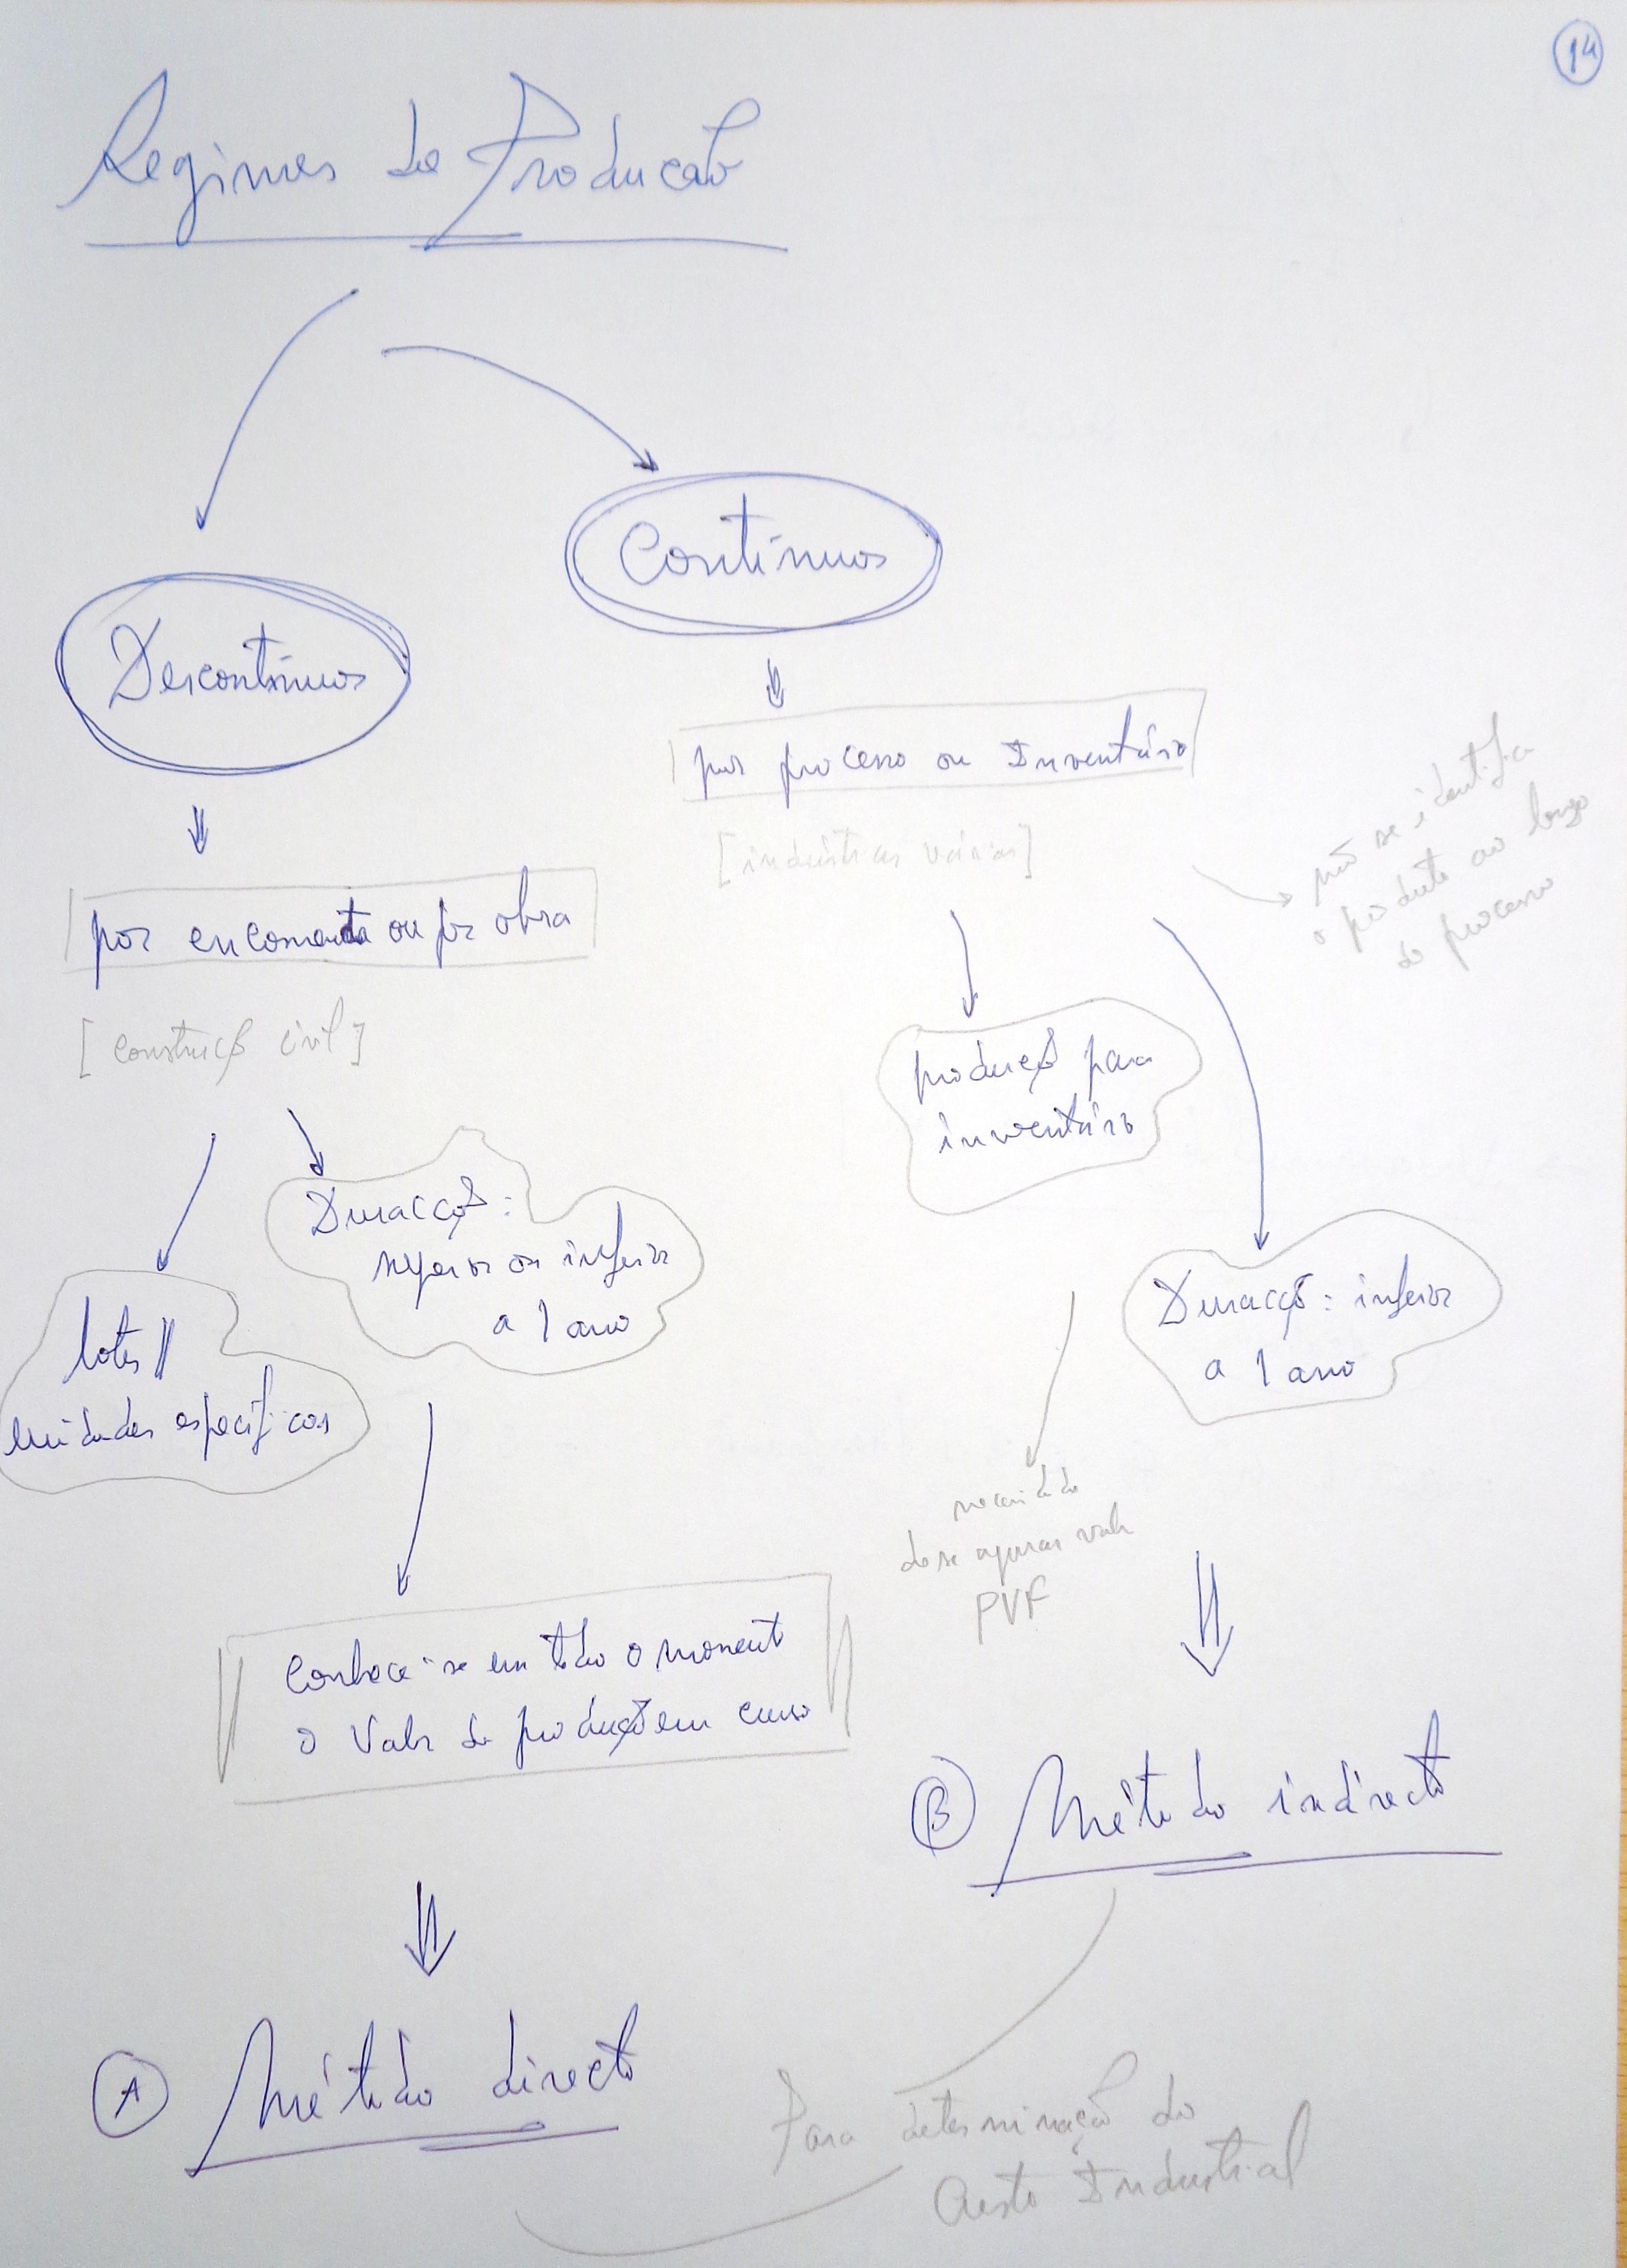 14
Regimes de Producão
Contínuos
Descontínuos
por processo ou Inventário
[indústrias várias]
não se identifica
o produto ao longo
do processo
por encomenda ou por obra
[construção civil]
produção para
inventário
Duracção:
superior ou inferior
a 1 ano
Duracção: inferior
a 1 ano
lotes //
unidades específicas
necessidade
de se apurar valor
PVF
Conhece-se em todo o momento
o valor da produção em curso
(B) Método indirecto
(A) Método directo
Para determinação do
Custo Industrial